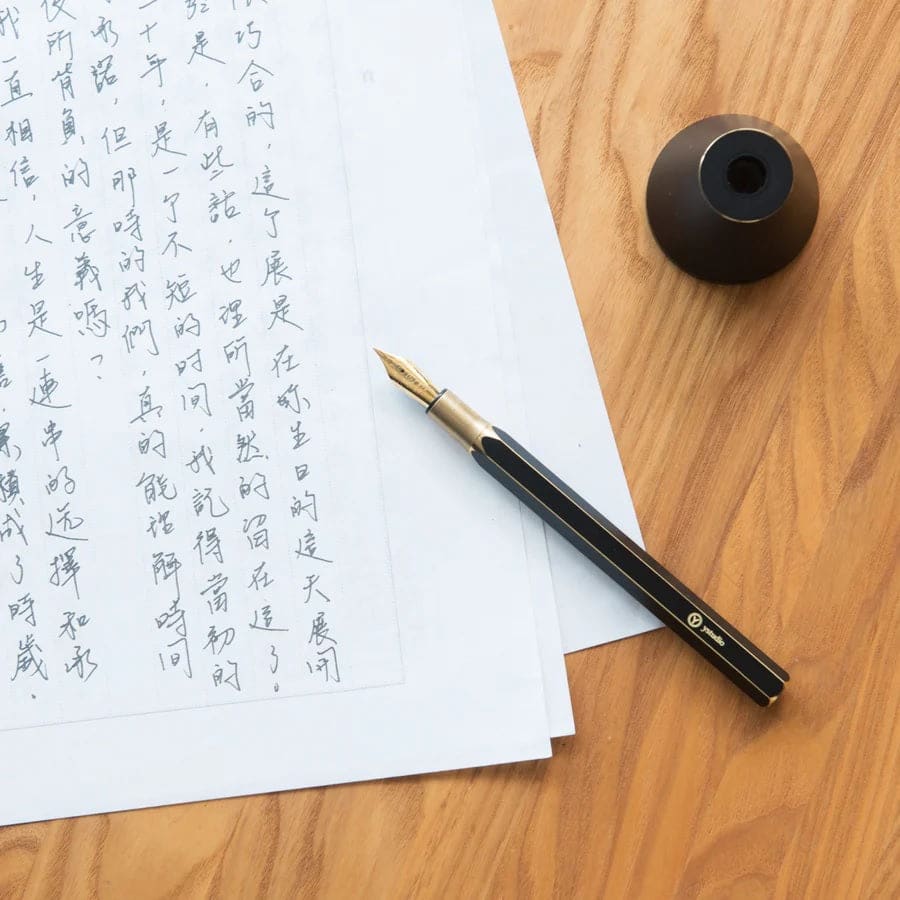 巧合的，這个展是在妳生日的這天展開
是，有些話，也理所當然的留在這了。
二十年，是一个不短的时间，我記得當初的
承諾，但那時的我們，真的能理解時间
所背負的意義嗎？
我一直相信，人生是一連串的选擇和承
累積成了時歲，
ystudio